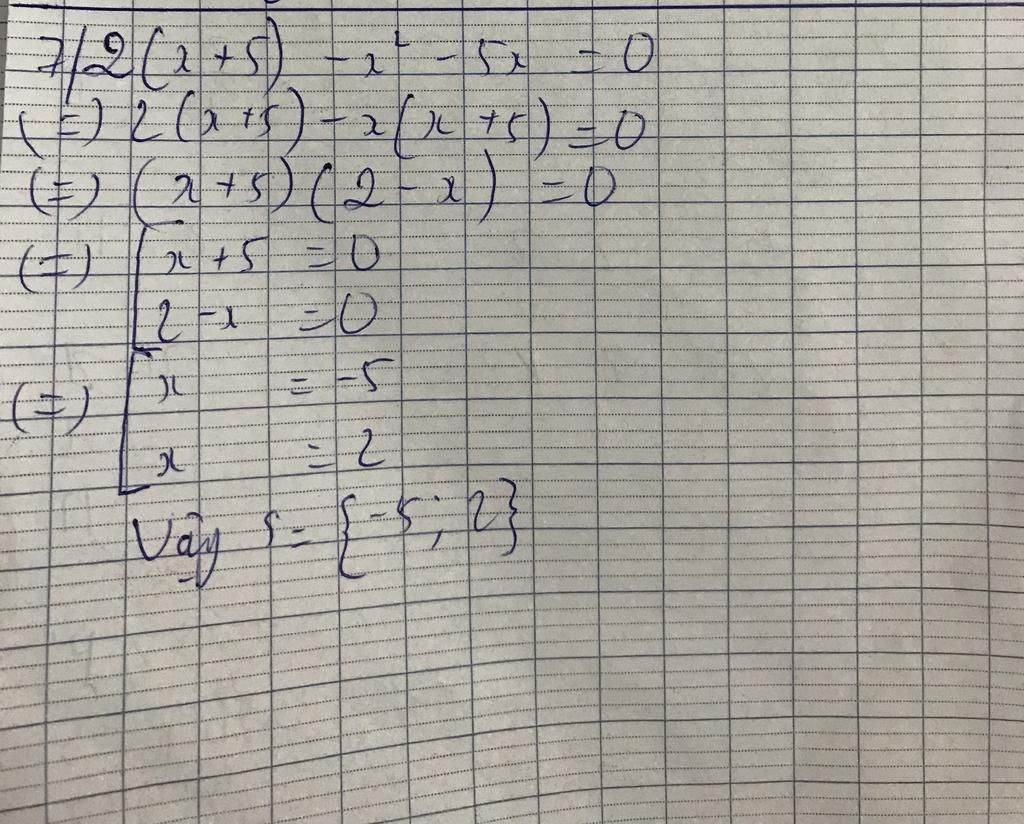 7/ 2(x+5) - x² - 5x = 0
(=) 2(x+5) - x(x+5) = 0
(=) (x+5)(2-x) = 0
(=) [ x+5 = 0
2-x = 0
(=) [ x = -5
x = 2
Vậy S = {-5; 2}